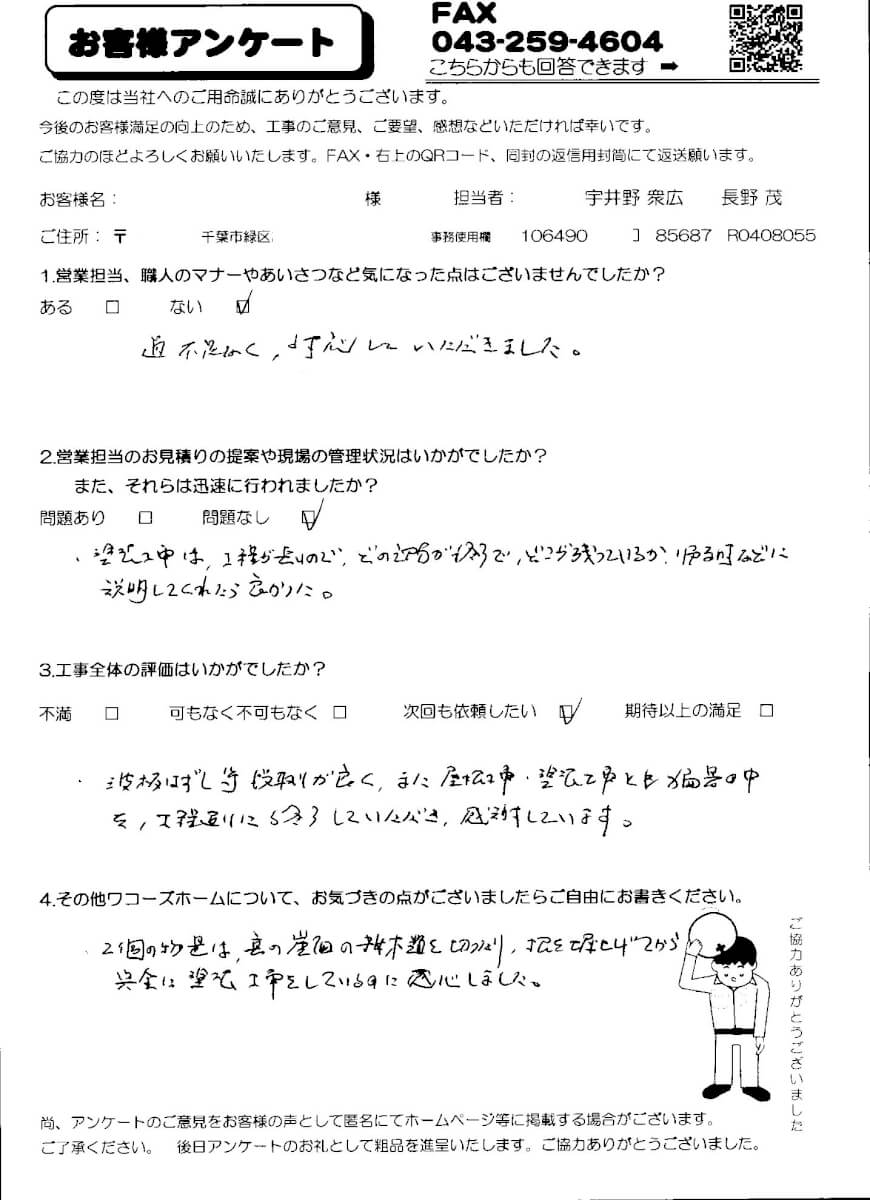 お客様アンケート
FAX
043-259-4604
こちらからも回答できます ➡
この度は当社へのご用命誠にありがとうございます。
今後のお客様満足の向上のため、工事のご意見、ご要望、感想などいただければ幸いです。
ご協力のほどよろしくお願いいたします。FAX・右上のQRコード、同封の返信用封筒にて返送願います。
お客様名: 様 担当者: 宇井野 衆広 長野 茂
ご住所:〒 千葉市緑区 事務使用欄 106490 85687 R0408055
1.営業担当、職人のマナーやあいさつなど気になった点はございませんでしたか?
ある □ ない ☑
過不足なく, 対応していただきました。
2.営業担当のお見積りの提案や現場の管理状況はいかがでしたか?
また、それらは迅速に行われましたか?
問題あり □ 問題なし ☑
・塗装工事は, 工程が長いので, どの辺りが終了で, どこが残っているか, 帰る時などに
説明してくれたら良かった。
3.工事全体の評価はいかがでしたか?
不満 □ 可もなく不可もなく □ 次回も依頼したい ☑ 期待以上の満足 □
・波板はずし等 段取りが良く, また 屋根工事・塗装工事とも 猛暑の中
を, 工程通りに 終了していただき, 感謝しています。
4.その他ワコーズホームについて、お気づきの点がございましたらご自由にお書きください。
は, 裏の崖側の雑木類を切ったり, してから
完全に 塗装工事をしているのに 感心しました。
ご協力ありがとうございました
尚、アンケートのご意見をお客様の声として匿名にてホームページ等に掲載する場合がございます。
ご了承ください。 後日アンケートのお礼として粗品を進呈いたします。ご協力ありがとうございました。